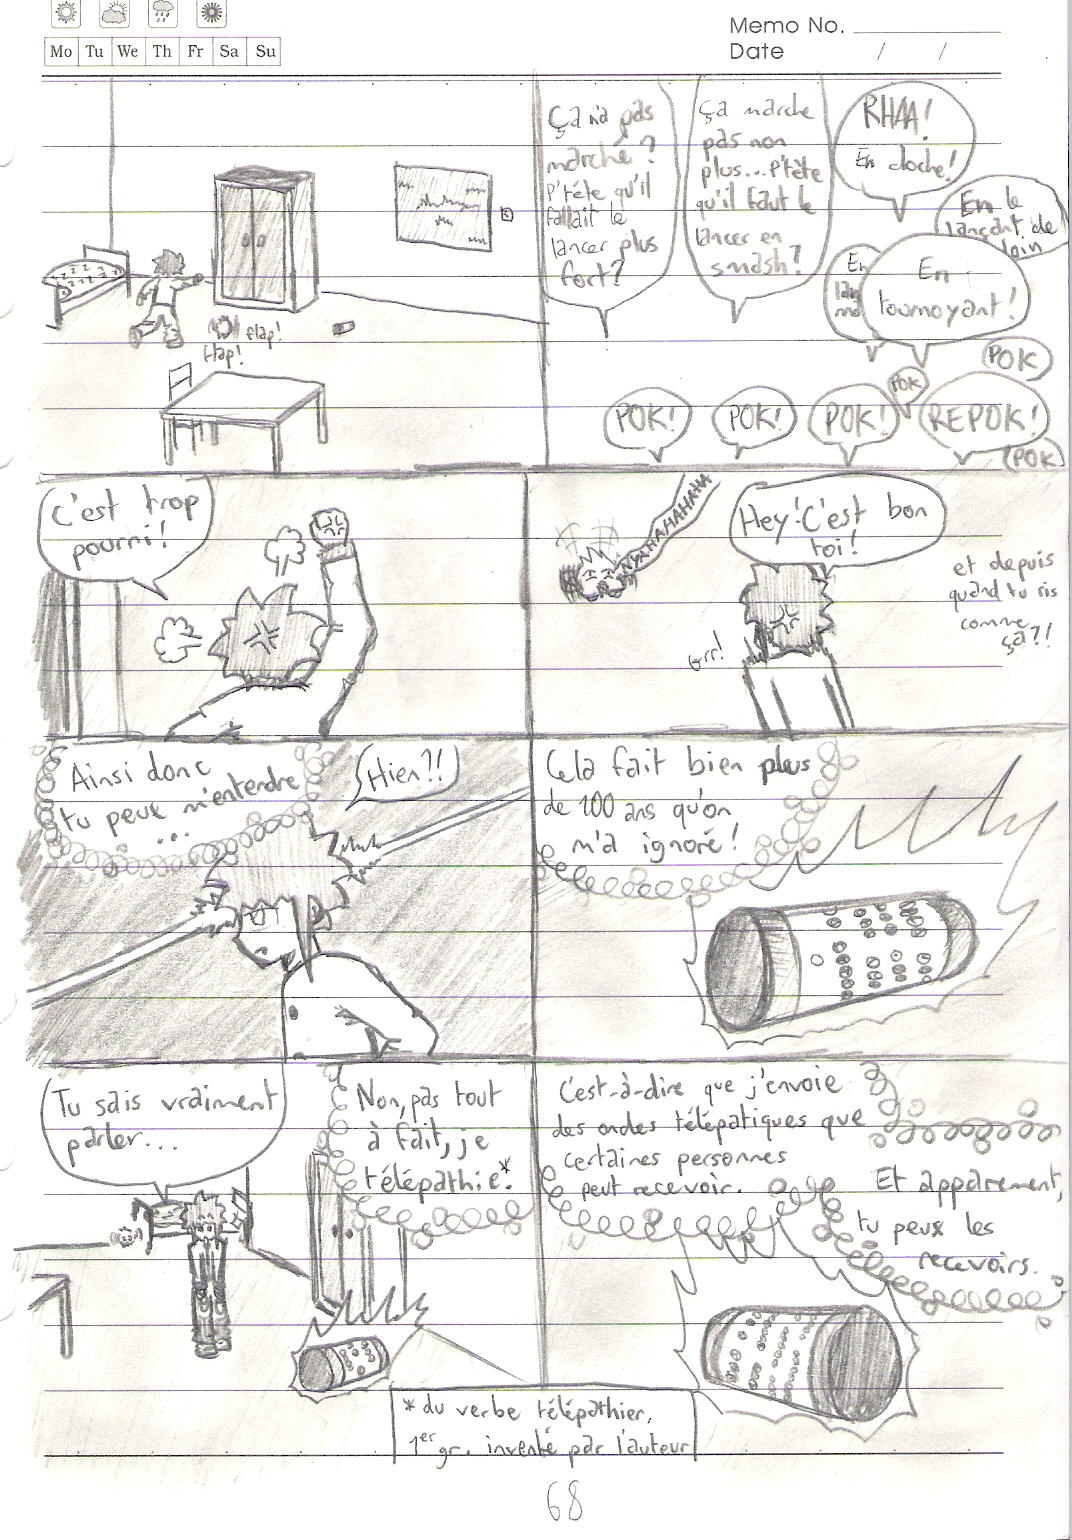 Memo No.
Date / /
Mo Tu We Th Fr Sa Su
flap!
flap!
Ça n'a pas
marché?
P'tête qu'il
fallait le
lancer plus
fort?
Ça marche
pas non
plus... P'tête
qu'il faut le
lancer en
smash?
RHAA!
En cloche!
En le
lançant de
loin
En
En
tournoyant!
POK!
POK!
POK!
POK
REPOK!
POK
POK
C'est trop
pourri!
NYAHAHAHAHAHA
Hey! C'est bon
toi!
Grr!
et depuis
quand tu ris
comme
ça?!
Ainsi donc
tu peux m'entendre
...
Hien?!
Cela fait bien plus
de 100 ans qu'on
m'a ignoré!
Tu sais vraiment
parler...
Non, pas tout
à fait, je
télépathie.*
C'est-à-dire que j'envoie
des ondes télépatiques que
certaines personnes
peut recevoir.
Et apparement,
tu peux les
recevoirs.
* du verbe télépathier,
1er gr. inventé par l'auteur
68